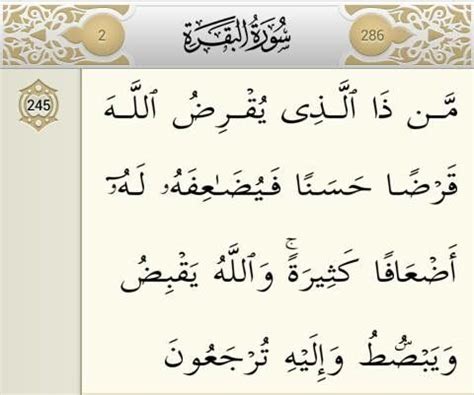 2 سُورَةُ البَقَرَةِ 286
245
مَّن ذَا ٱلَّذِى يُقْرِضُ ٱللَّهَ
قَرْضًا حَسَنًا فَيُضَـٰعِفَهُۥ لَهُۥٓ
أَضْعَافًا كَثِيرَةً ۚ وَٱللَّهُ يَقْبِضُ
وَيَبْصُۜطُ وَإِلَيْهِ تُرْجَعُونَ